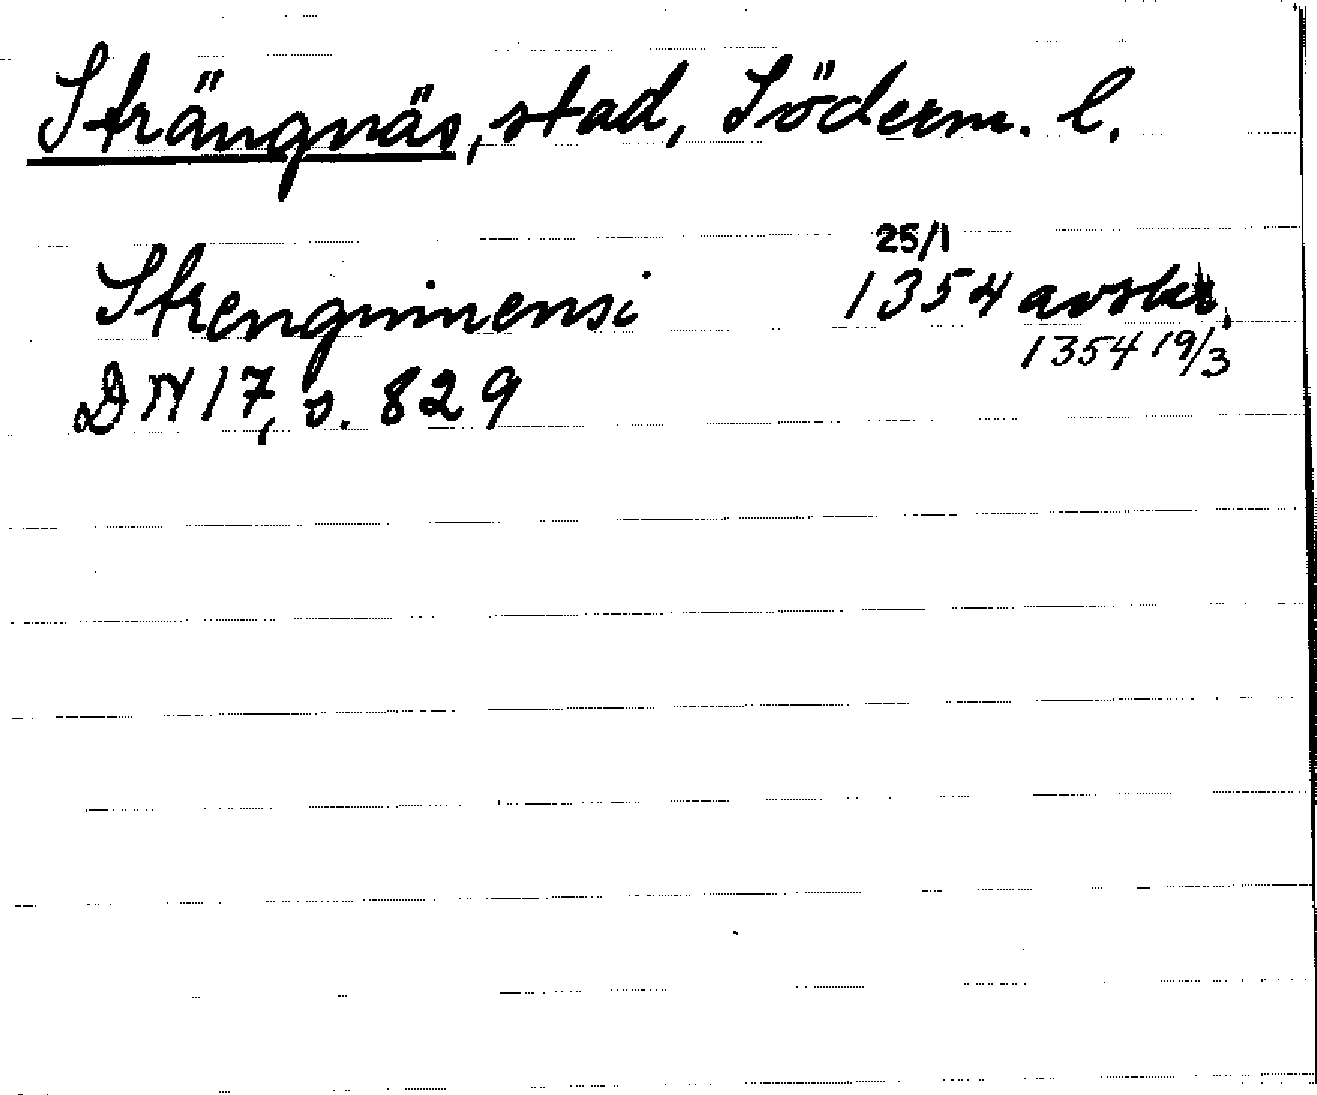 Strängnäs, stad, Söderm. l.
Strenginensi 25/1 1354 avskr.
1354 19/3
DN 17, s. 829